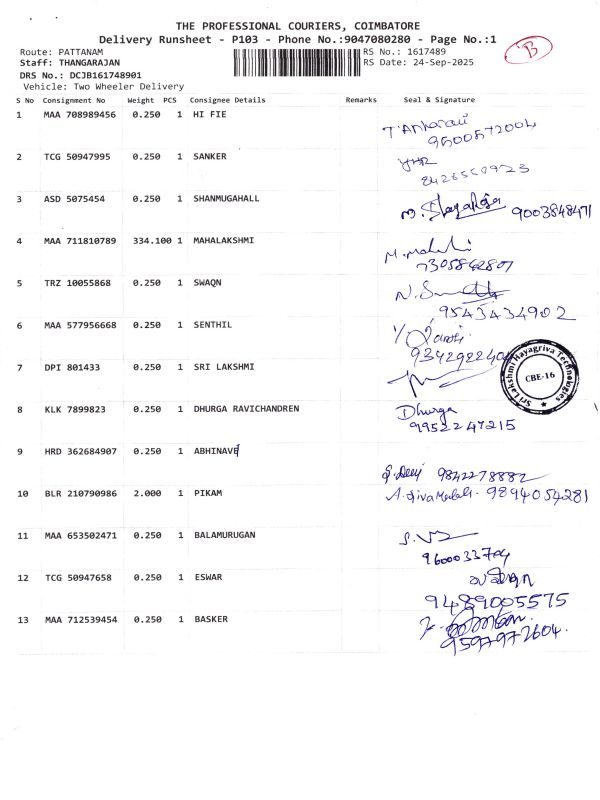 THE PROFESSIONAL COURIERS, COIMBATORE
Delivery Runsheet - P103 - Phone No.:9047080280 - Page No.:1
B
Route: PATTANAM RS No.: 1617489
Staff: THANGARAJAN RS Date: 24-Sep-2025
DRS No.: DCJB161748901
Vehicle: Two Wheeler Delivery
S No Consignment No Weight PCS Consignee Details Remarks Seal & Signature
1 MAA 708989456 0.250 1 HI FIE
2 TCG 50947995 0.250 1 SANKER
3 ASD 5075454 0.250 1 SHANMUGAHALL
9003848471
4 MAA 711810789 334.100 1 MAHALAKSHMI
7305842807
5 TRZ 10055868 0.250 1 SWAQN
9543434902
6 MAA 577956668 0.250 1 SENTHIL
7 DPI 801433 0.250 1 SRI LAKSHMI
Sri Lakshmi Hayagriva Technologies
CBE-16
8 KLK 7899823 0.250 1 DHURGA RAVICHANDREN
Dhurga
9952247215
9 HRD 362684907 0.250 1 ABHINAVE
9842278882
10 BLR 210790986 2.000 1 PIKAM
9894054281
11 MAA 653502471 0.250 1 BALAMURUGAN
9600033704
12 TCG 50947658 0.250 1 ESWAR
9489005575
13 MAA 712539454 0.250 1 BASKER
9597972604.